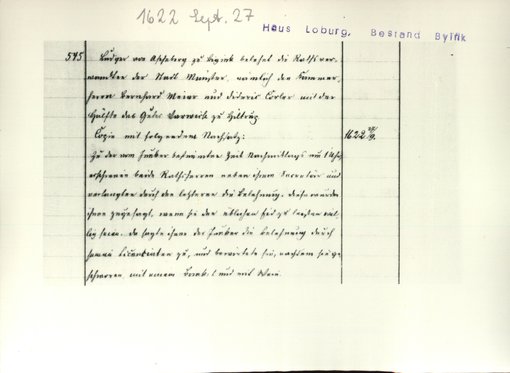 1622 Sept. 27
Haus Loburg, Bestand Byink
575 Ludger von Ascheberg zu Byink belehnt die Rathsver-
wandten der Stadt Münster, nämlich den Kämmer-
herrn Bernhard Meier und Dideric Corler mit der
Hälfte des Gutes zu Hiltrup
Copie mit folgendem Nachsatz: 1622 27/9.
Zu der vom Junker bestimmten Zeit Nachmittags um 1 Uhr
erschienen beide Rathsherren neben ihrem Secretär und
verlangten durch den letzteren die Belehnung. Diese wurde
ihnen zugesagt, wenn sie der
sein. Da sagte ihnen der Junker die Belehnung durch
seinen zu, und bewirtete sie, nachdem sie ge-
schworen mit einem und mit Wein.